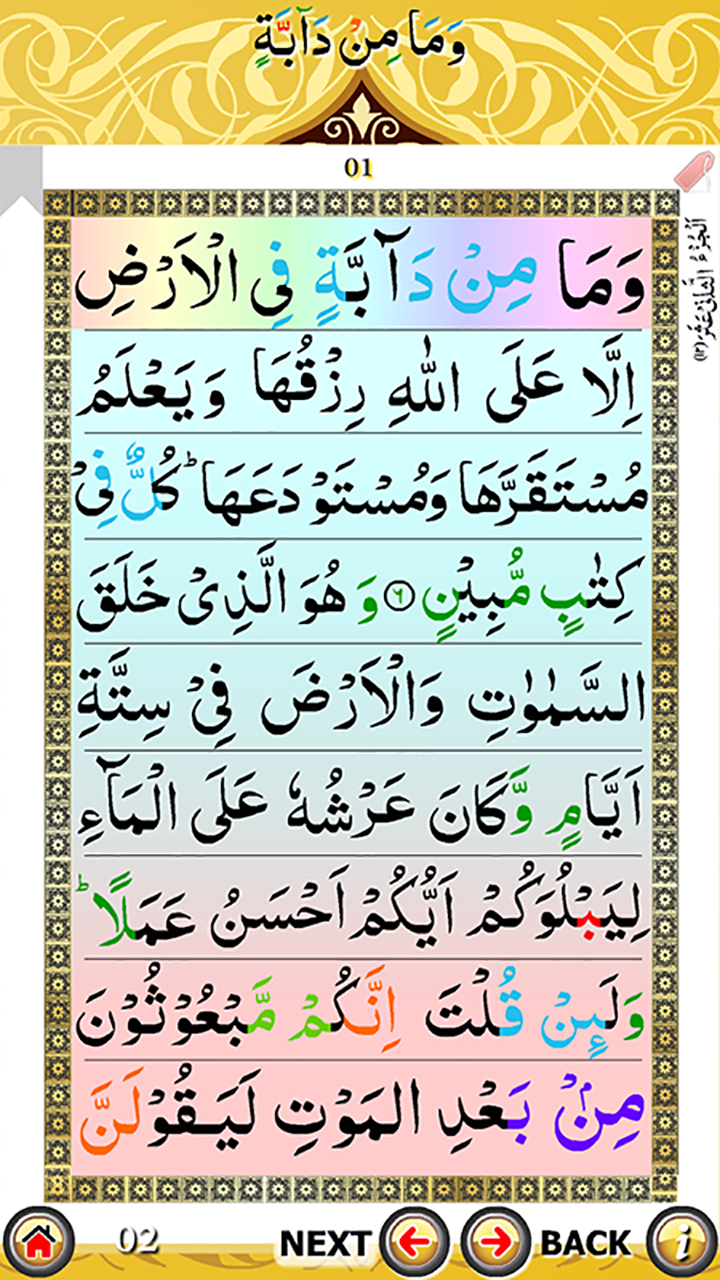 وَمَا مِنْ دَآبَّةٍ
01
اَلْجُزْءُ الثَّانِیْ عَشَرَ (۱۲)
وَمَا مِنْ دَآبَّةٍ فِی الْاَرْضِ
اِلَّا عَلَی اللّٰهِ رِزْقُهَا وَيَعْلَمُ
مُسْتَقَرَّهَا وَمُسْتَوْدَعَهَا ؕ كُلٌّ فِیْ
كِتٰبٍ مُّبِيْنٍ ۶ وَ هُوَ الَّذِیْ خَلَقَ
السَّمٰوٰتِ وَالْاَرْضَ فِیْ سِتَّةِ
اَيَّامٍ وَّكَانَ عَرْشُهٗ عَلَی الْمَآءِ
لِيَبْلُوَكُمْ اَيُّكُمْ اَحْسَنُ عَمَلًا ؕ
وَلَئِنْ قُلْتَ اِنَّكُمْ مَّبْعُوْثُوْنَ
مِنْۢ بَعْدِ الْمَوْتِ لَيَقُوْلَنَّ
02 NEXT BACK i